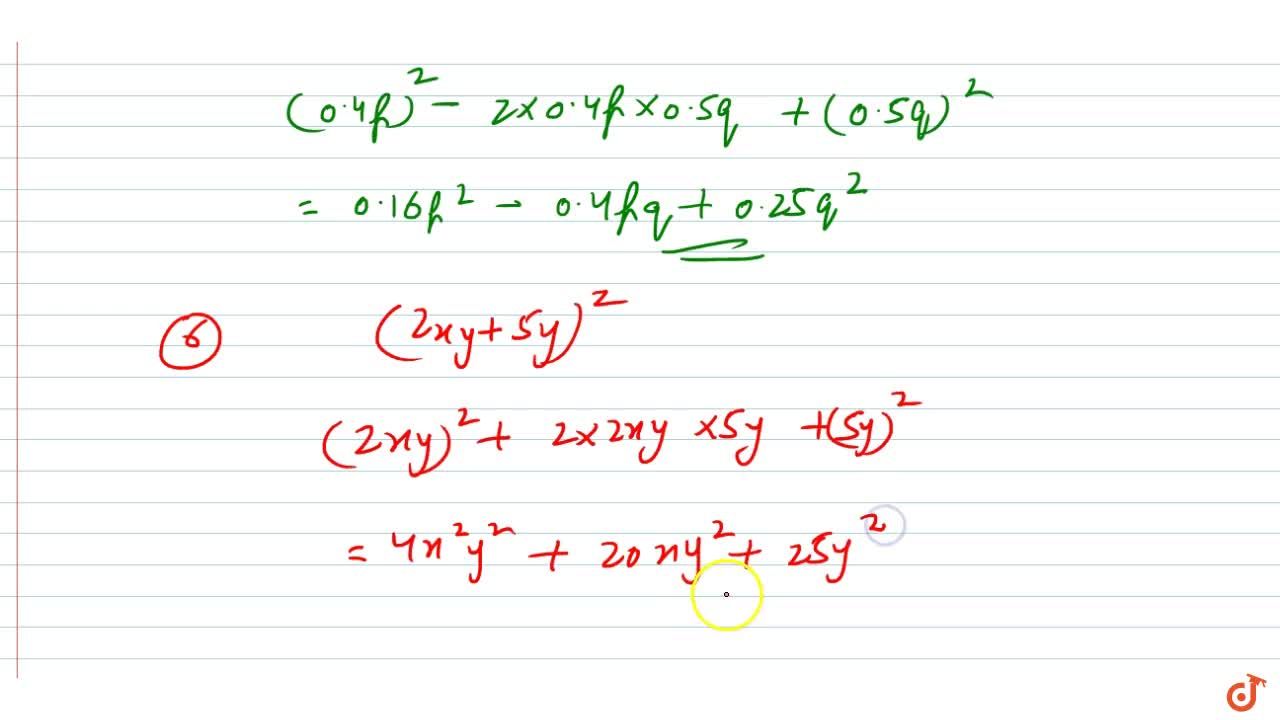 (0.4p)² - 2×0.4p×0.5q + (0.5q)²
= 0.16p² - 0.4pq + 0.25q²
6 (2xy+5y)²
(2xy)² + 2×2xy ×5y +(5y)²
= 4x²y² + 20xy² + 25y²